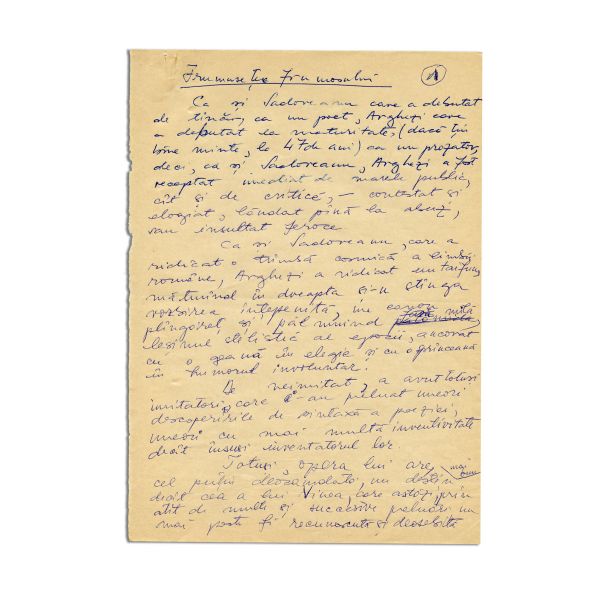 Frumusețea frumosului
1
Ca și Sadoveanu care a debutat
de tînăr, ca un poet, Arghezi care
a debutat la maturitate, (dacă țin
bine minte, la 47 de ani) ca un prozator,
deci, ca și Sadoveanu, Arghezi a fost
receptat imediat de marele public,
cît și de critică, – contestat și
elogiat, lăudat pînă la abuz,
sau insultat feroce
Ca și Sadoveanu, care a
ridicat o trîmbă cosmică a limbii
române, Arghezi a ridicat un taifun,
măturînd în dreapta și-n stînga
vorbirea înțepenită, un canon
plîngăreț, și, pălmuind fără milă
lesnime stilistic al epocii, ancorat
cu o geană în elegie și cu o sprinceană
în humorul involuntar.
De neimitat, a avut totuși
imitatori, care i-au preluat uneori
descoperirile de sintaxă a poeziei,
uneori cu mai multă inventivitate
decît însuși inventatorul lor.
Totuși, opera lui are,
cel puțin deocamdată, un destin mai bun
decît cea a lui Vinea, care astăzi, prin
atît de multe și succesive preluări nu
mai poate fi recunoscută și deosebită